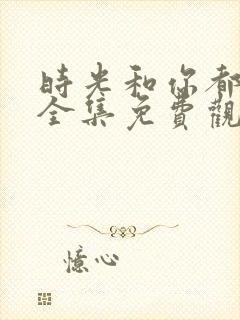 時光和你都
全集免費觀
憶心